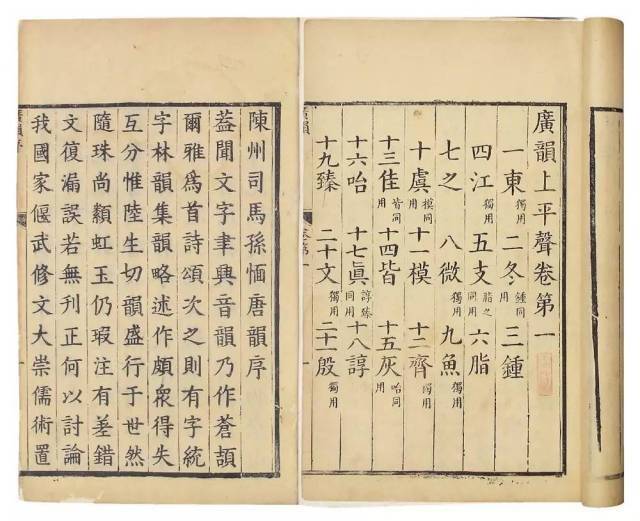 廣韻上平聲卷第一
一東獨用 二冬鍾同用 三鍾
四江獨用 五支脂之同用 六脂
七之 八微獨用 九魚獨用
十虞模同用 十一模 十二齊獨用
十三佳皆同用 十四皆 十五灰咍同用
十六咍 十七眞諄臻同用 十八諄
十九臻 二十文獨用 二十一殷獨用
廣韻
陳州司馬孫愐唐韻序
蓋聞文字聿興音韻乃作蒼頡
爾雅爲首詩頌次之則有字統
字林韻集韻略述作頗衆得失
互分惟陸生切韻盛行于世然
隨珠尚纇虹玉仍瑕注有差錯
文復漏誤若無刊正何以討論
我國家偃武修文大崇儒術置
廣韻序